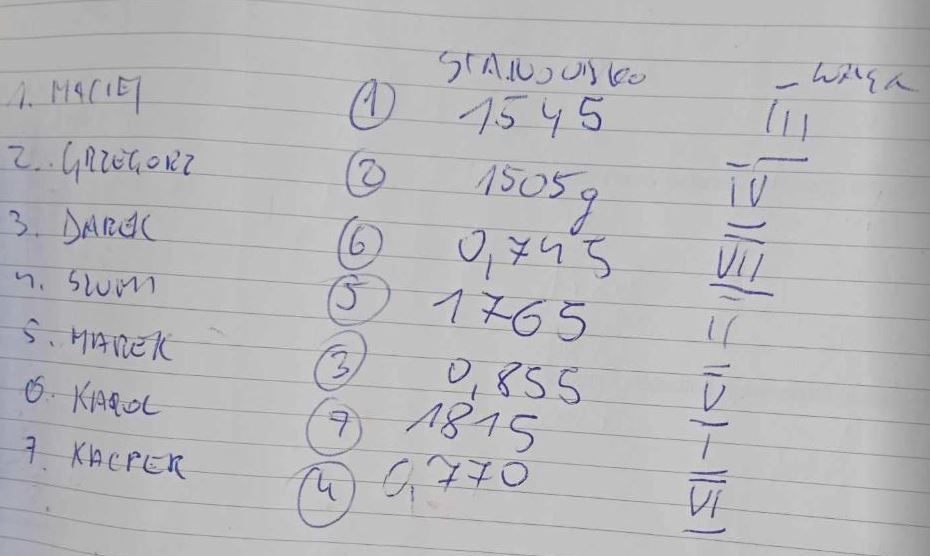 STANOWISKO - WAGA
1. MACIEJ 1 1545 III
2. GRZEGORZ 2 1505g IV
3. DAREK 6 0,745 VII
4. 5 1765 II
5. MAREK 3 0,855 V
6. KAROL 7 1815 I
7. KACPER 4 0,770 VI